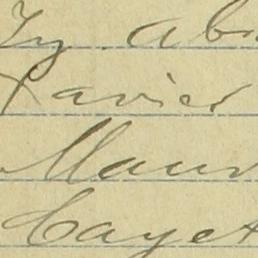 Zy. Abr
Xavier
Maur
Cayet